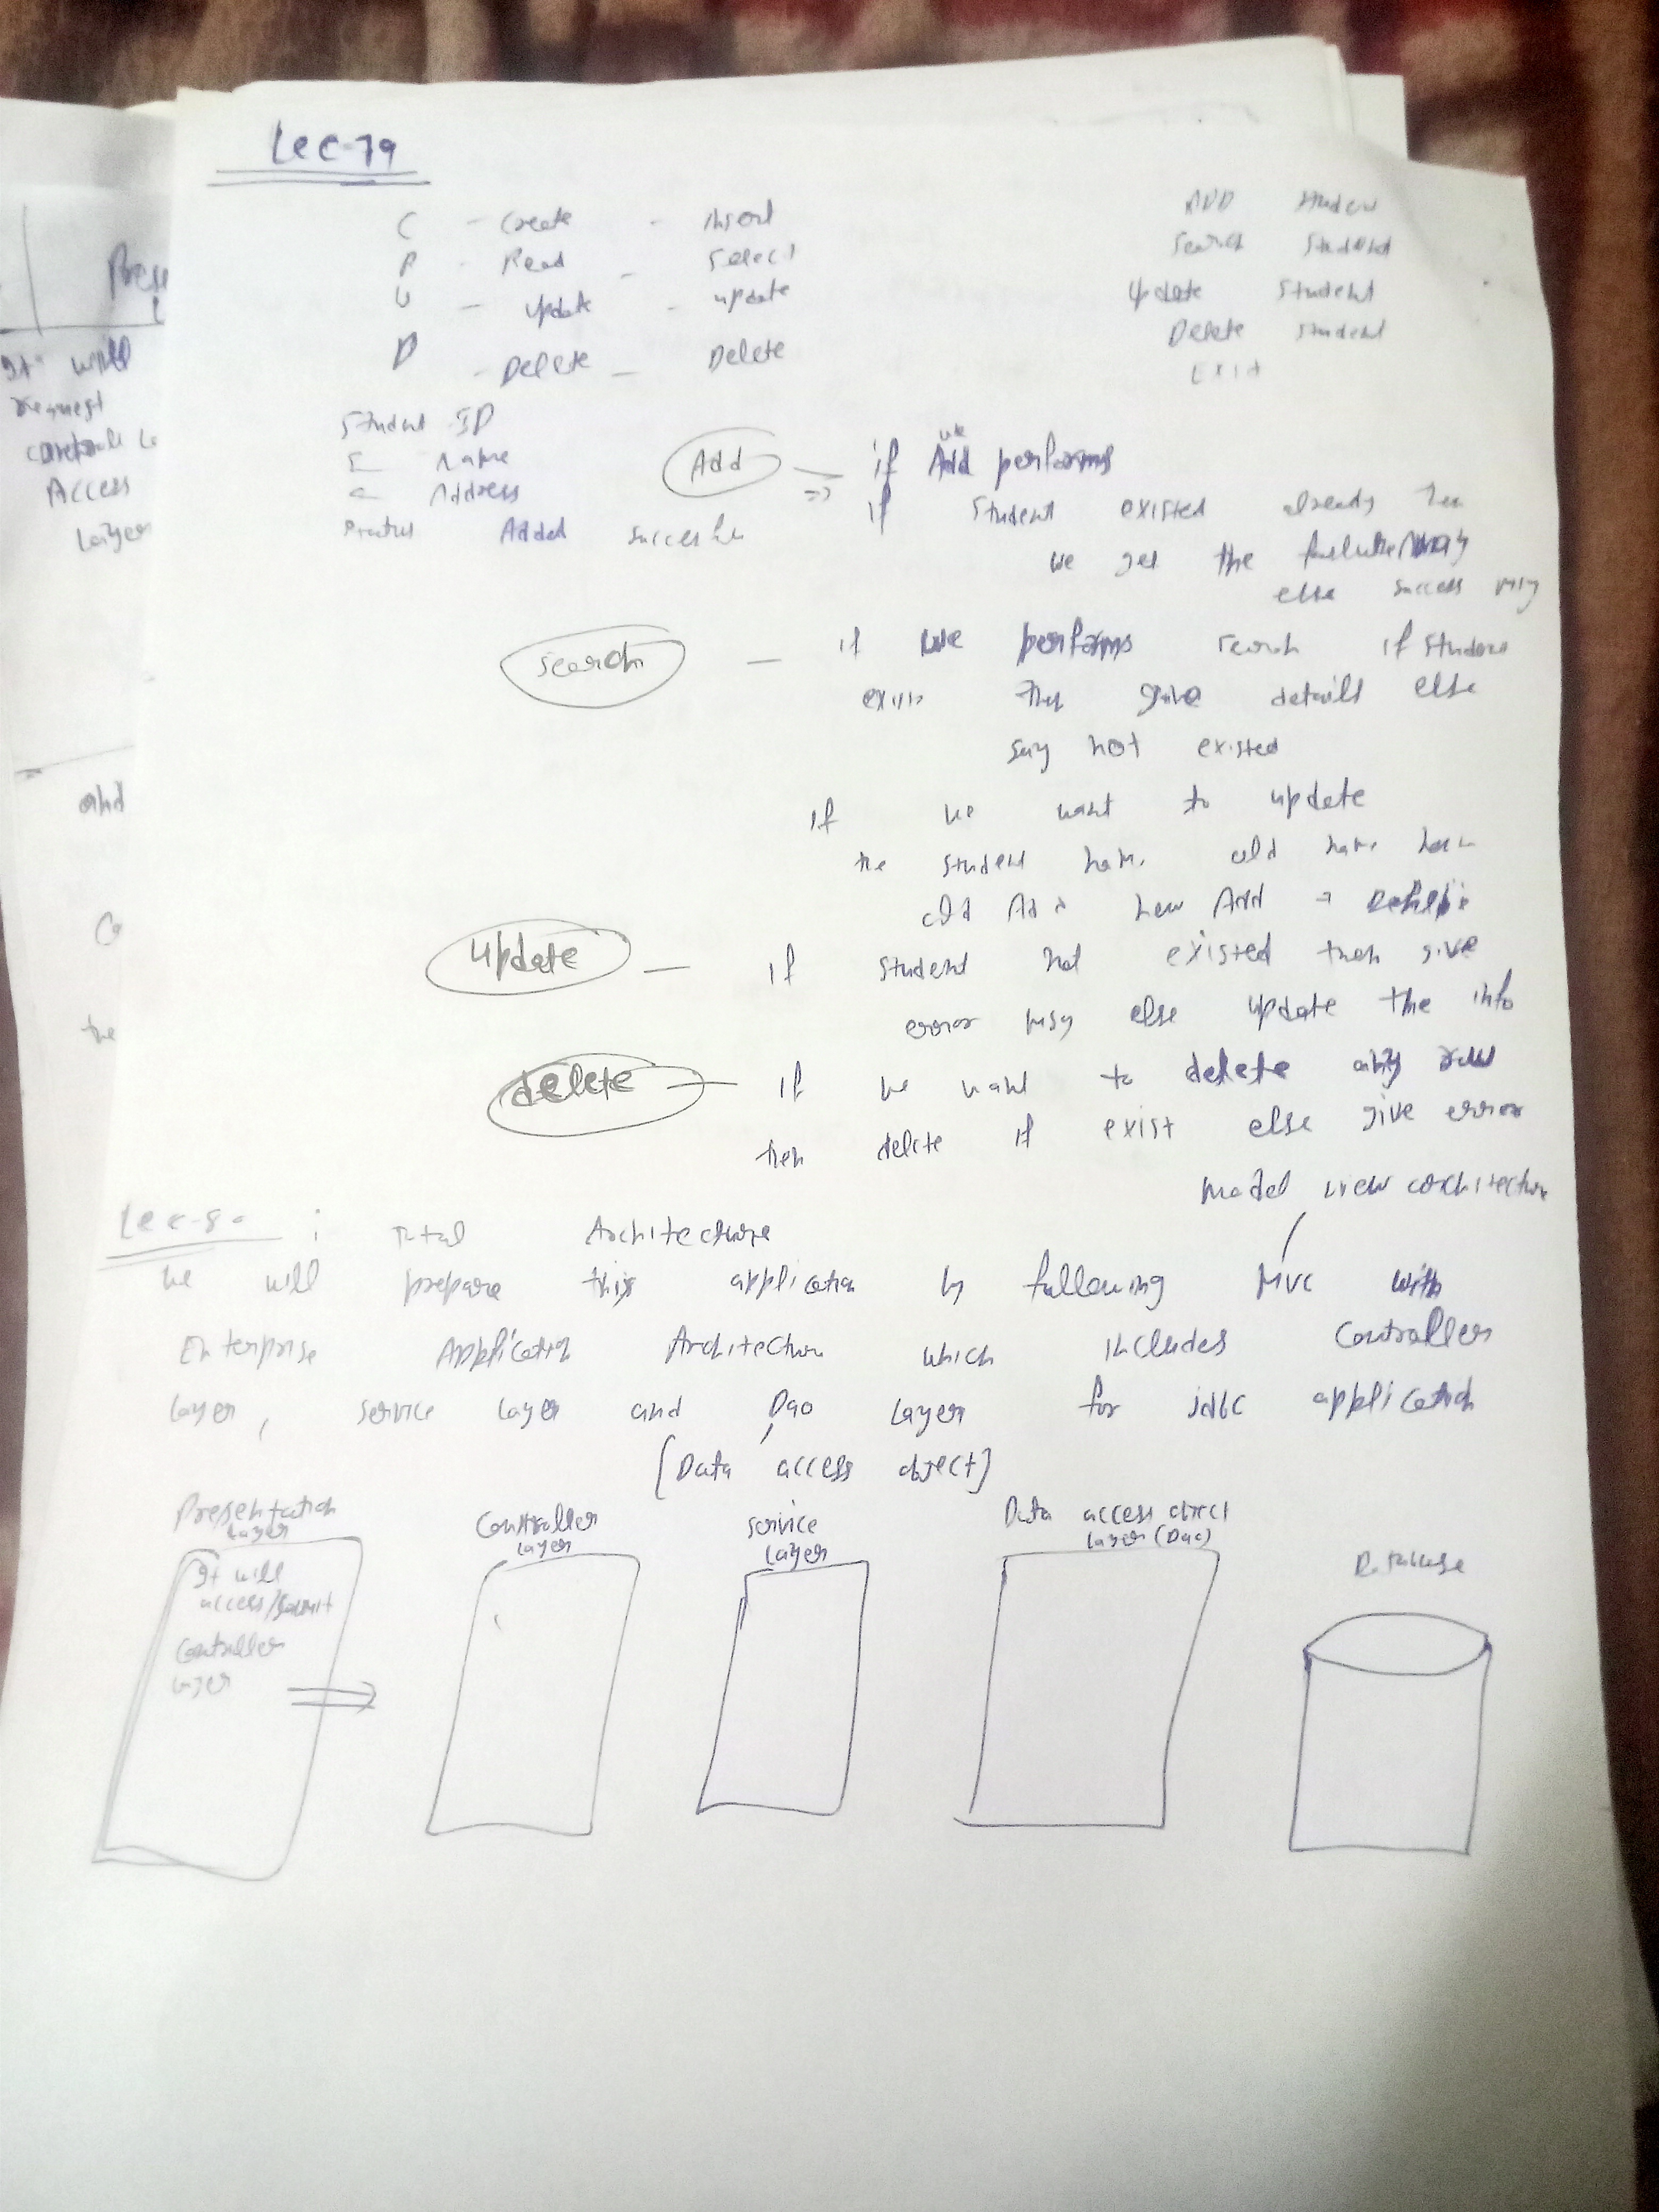 Lec-79
C - Create - Insert
R - Read - Select
U - update - update
D - Delete - Delete
ADD Student
Search Student
Update Student
Delete Student
Exit
Student ID
S Name
Address
Status Added
Add => if we Add performs
if student existed already then
we get the failure msg
else success msg
search - if we performs search if student
exists they give details else
say not existed
if we want to update
the student name old name new
old Add new Add
update - if student not existed then give
error msg else update the info
delete - if we want to delete any row
then delete if exist else give error
model view architecture
Lec-80 : Total Architecture
we will prepare this application by following MVC with
Enterprise Application Architecture which includes Controller
layer, service layer and Dao layer for jdbc application
[Data access object]
Presentation
layer
Controller
layer
service
layer
Data access object
layer (Dao)
Database
It will
access/submit
Controller
layer
Pres
It will
request
Access
layer
and
the